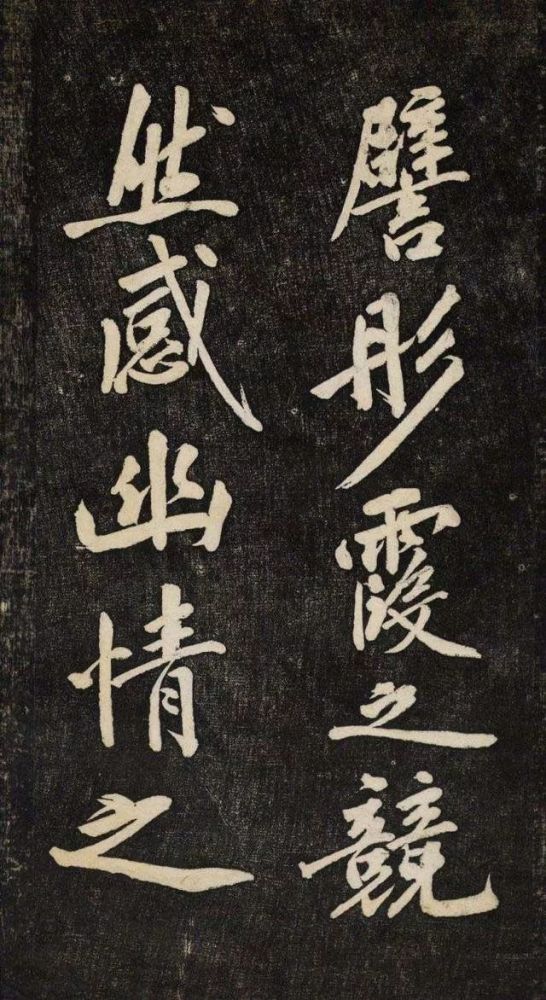 譬彤霞之競
然感幽情之